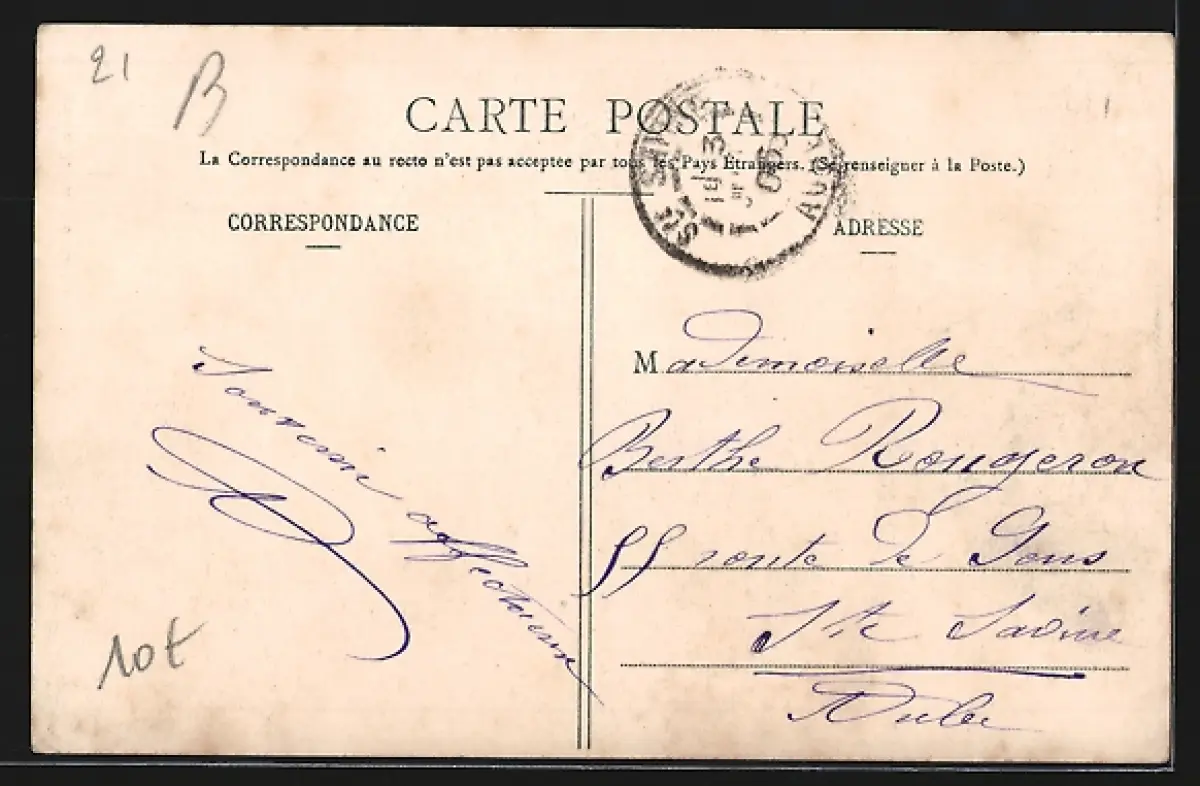 21
B
CARTE POSTALE
La Correspondance au recto n'est pas acceptée par tous les Pays Étrangers. (Se renseigner à la Poste.)
CORRESPONDANCE
Souvenir affectueux
10t
STE SAVINE
AUBE
ADRESSE
Mademoiselle
Berthe Rougeron
55 route de Sens
Ste Savine
Aube